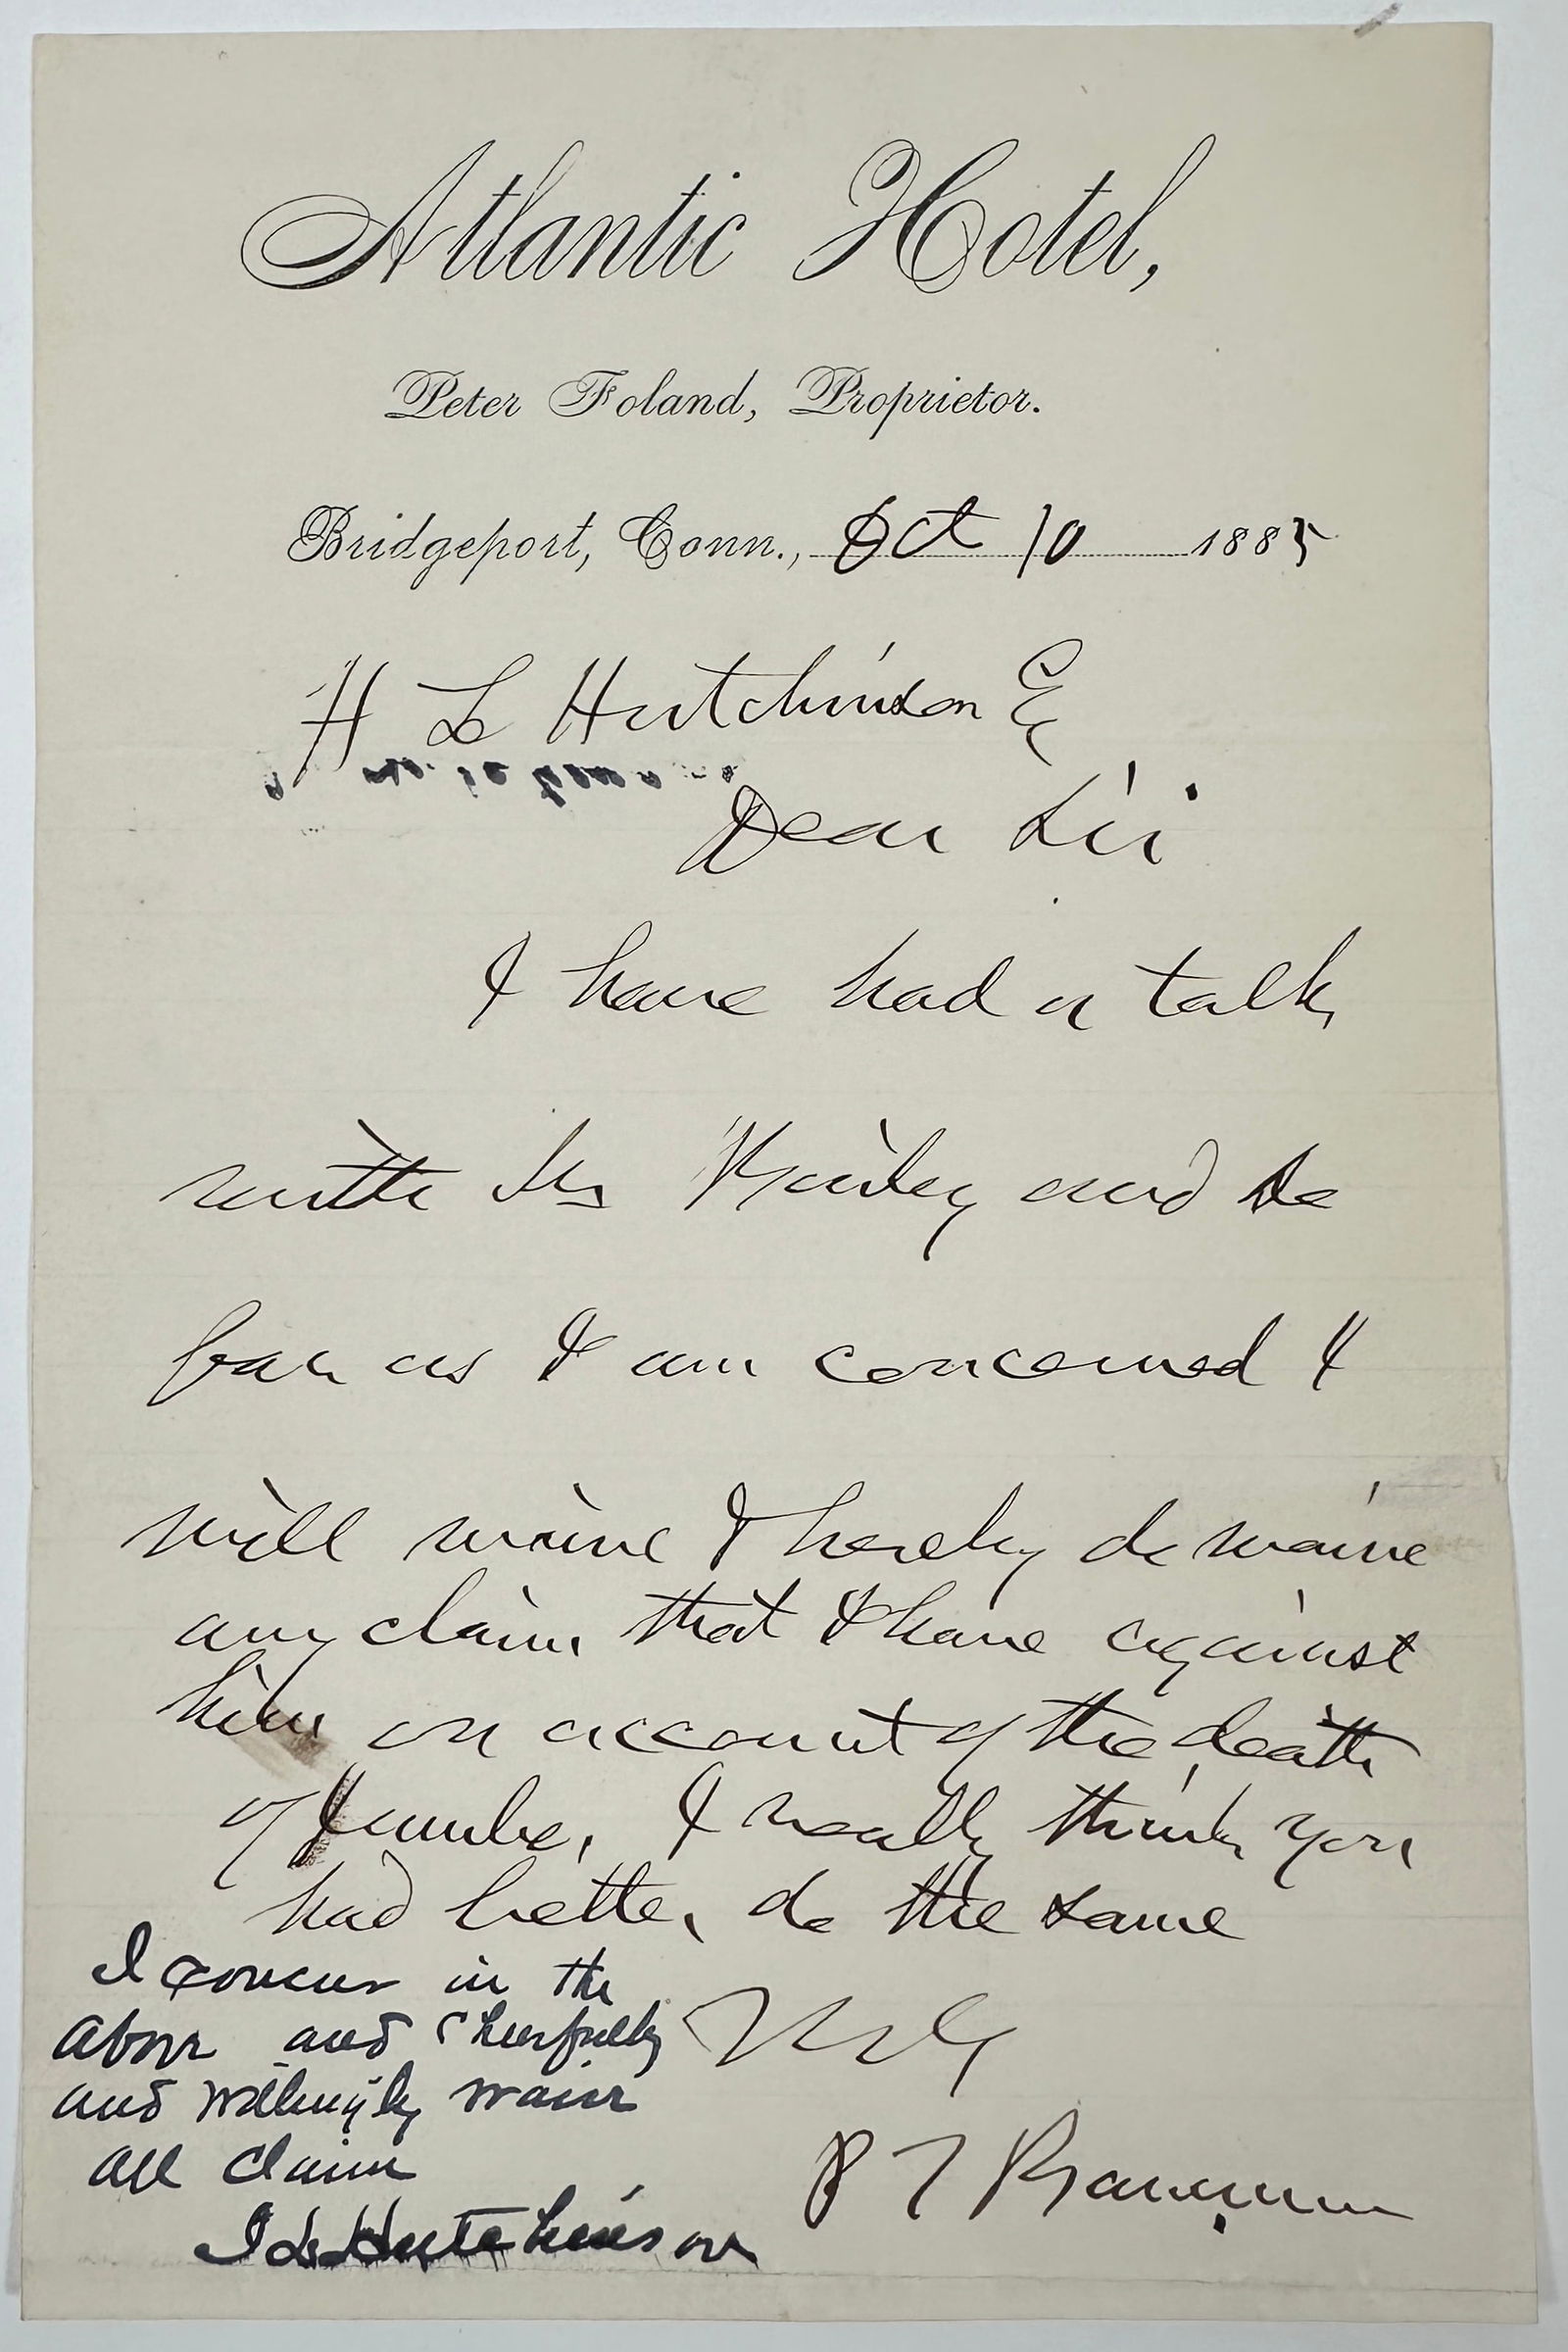 Atlantic Hotel,
Peter Foland, Proprietor.
Bridgeport, Conn., Oct 10 1885
H L Hutchinson
Dear Sir
I have had a talk
with and so
far as I am concerned I
will waive & hereby do waive
any claim that I have against
him on account of the death
of Jumbo, I really think you
had better do the same
P T Barnum
I concur in the
above and cheerfully
and willingly waive
all claim
J L Hutchinson